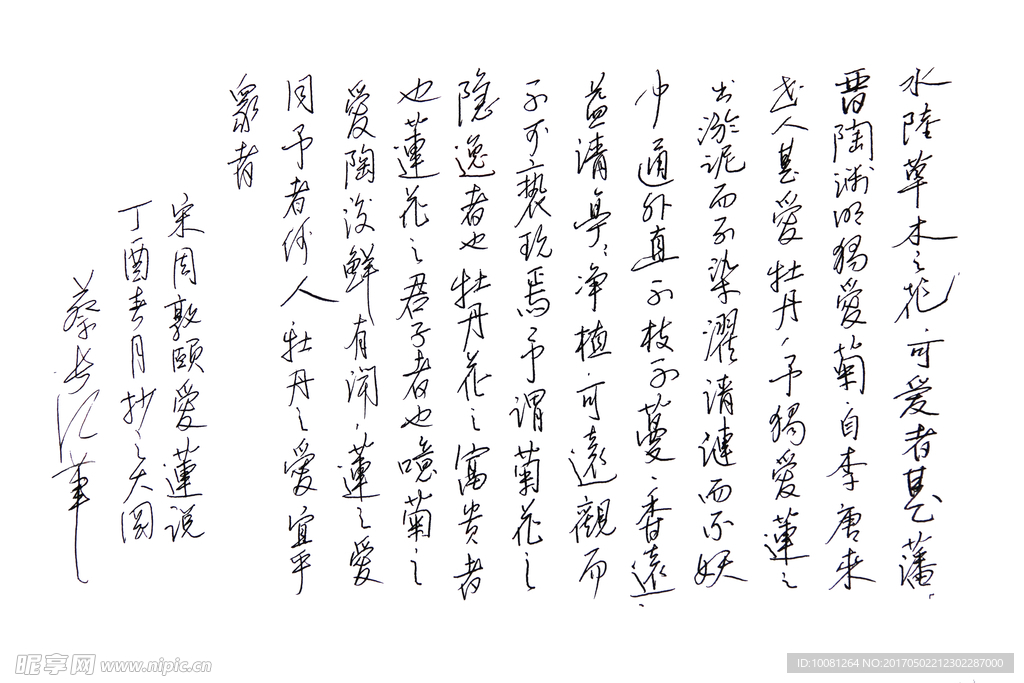 水陸草木之花可爱者甚藩
晋陶渊明獨愛菊自李唐来
世人甚愛牡丹予獨愛蓮之
出淤泥而不染濯清漣而不妖
中通外直不枝不蔓香遠
益清亭亭净植可遠觀而
不可亵玩焉予谓菊花之
隐逸者也牡丹花之富贵者
也蓮花之君子者也噫菊之
愛陶後鲜有闻蓮之愛
同予者何人牡丹之愛宜乎
衆者
宋周敦颐愛蓮说
丁酉春月抄之天
蔡
昵享网 www.nipic.cn
ID:10081264 NO:20170502212302287000